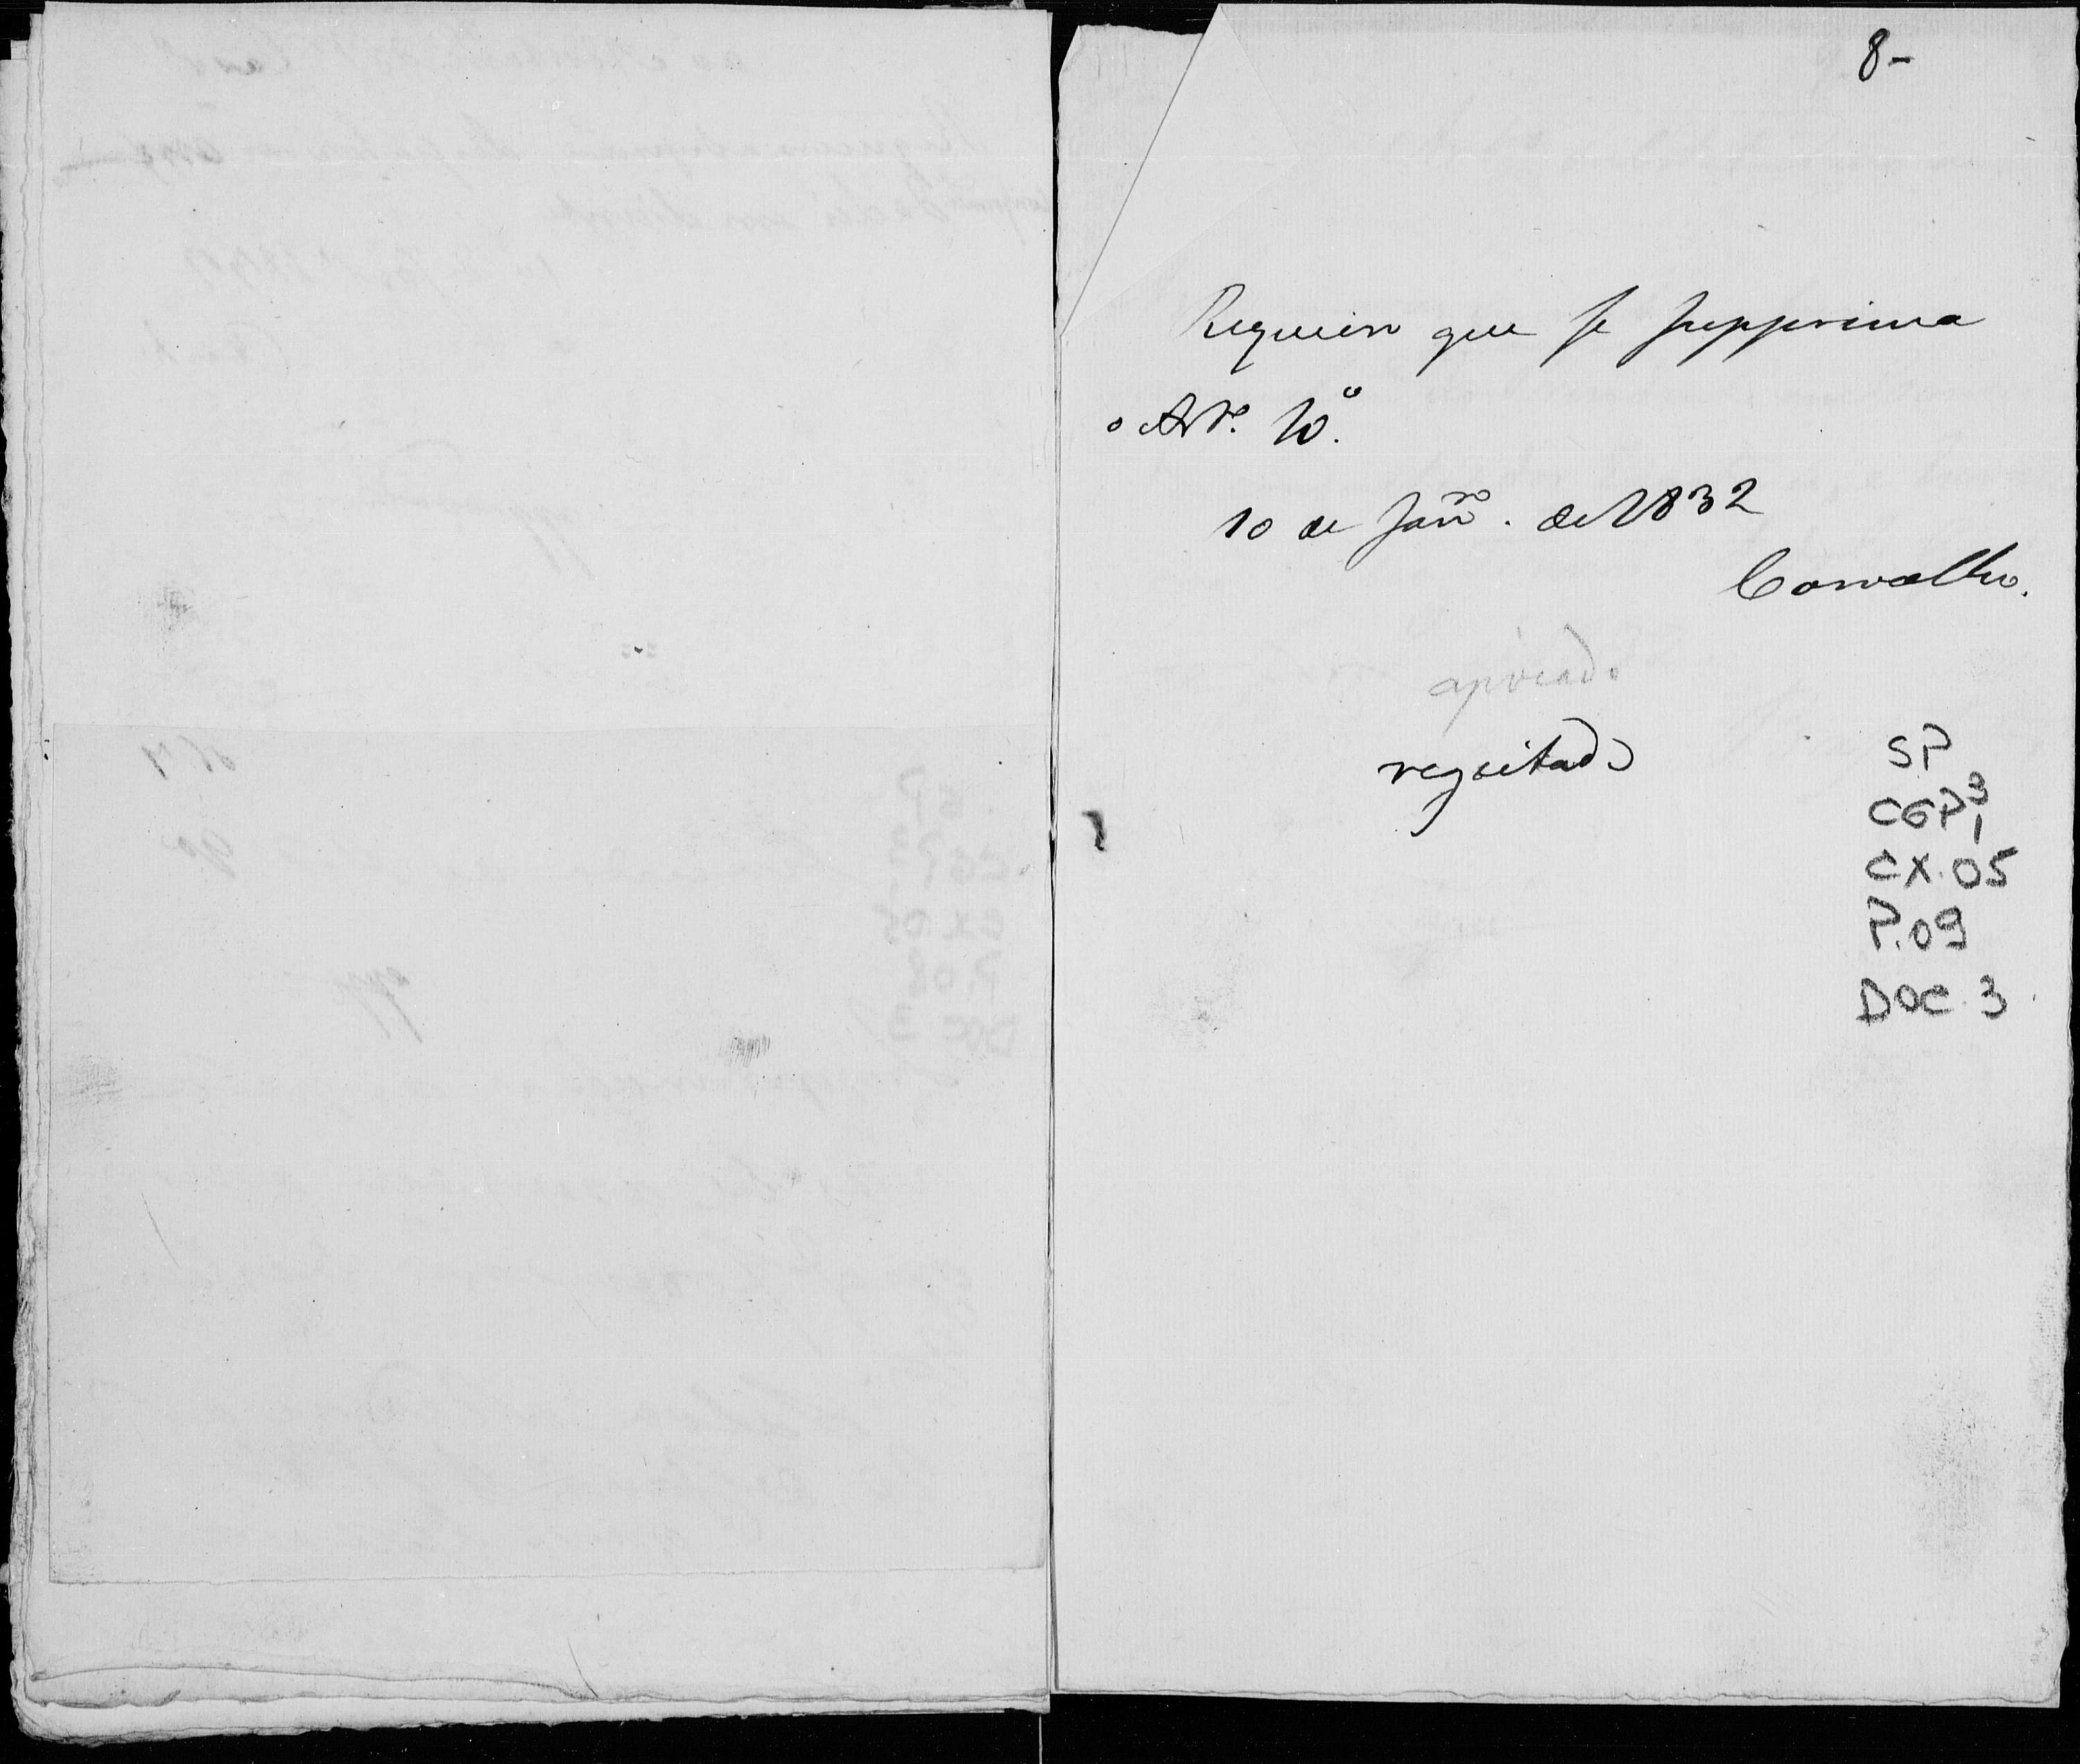 8-
Requeiro que se supprima
o Art.º 10º.
10 de Janrº. de 1832
Carvalho.
apoiado
regeitado
SP
CGP3
1
CX.05
P.09
DOC.3